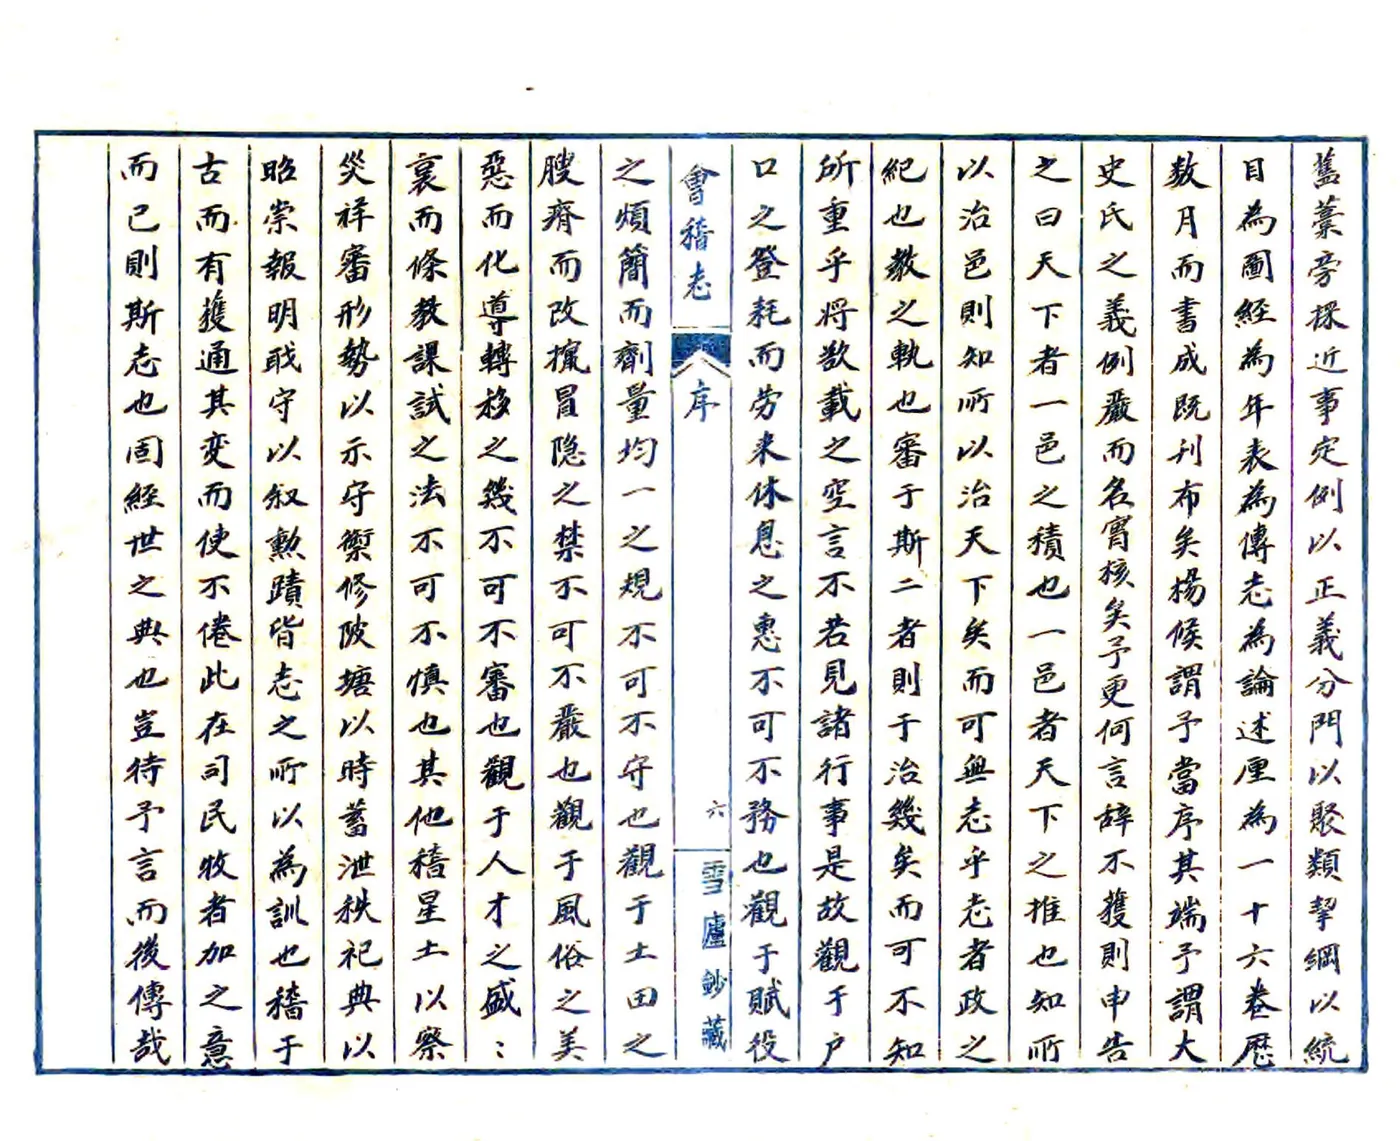 舊藁旁採近事定例以正義分門以聚類挈綱以統
目為圖經為年表為傳志為論述厘為一十六卷歷
数月而書成既刊布矣楊候謂予當序其端予謂大
史氏之義例嚴而名實核矣予更何言辞不獲則申告
之曰天下者一邑之積也一邑者天下之推也知所
以治邑則知所以治天下矣而可無志乎志者政之
紀也教之軌也審于斯二者則于治幾矣而可不知
所重乎将欲載之空言不若見諸行事是故觀于户
口之登耗而劳来休息之惠不可不務也觀于賦役
會稽志
序
六
雪廬鈔藏
之煩簡而劑量均一之規不可不守也觀于土田之
膄瘠而改攛冒隐之禁不可不嚴也觀于風俗之美
惡而化導轉移之幾不可不審也觀于人才之盛：
衰而條教課試之法不可不慎也其他稽星土以察
災祥審形勢以示守禦修陂塘以時蓄泄秩祀典以
昭崇報明戢守以叙勲蹟皆志之所以為訓也稽于
古而有獲通其变而使不倦此在司民牧者加之意
而已則斯志也固經世之典也豈待予言而後傳哉